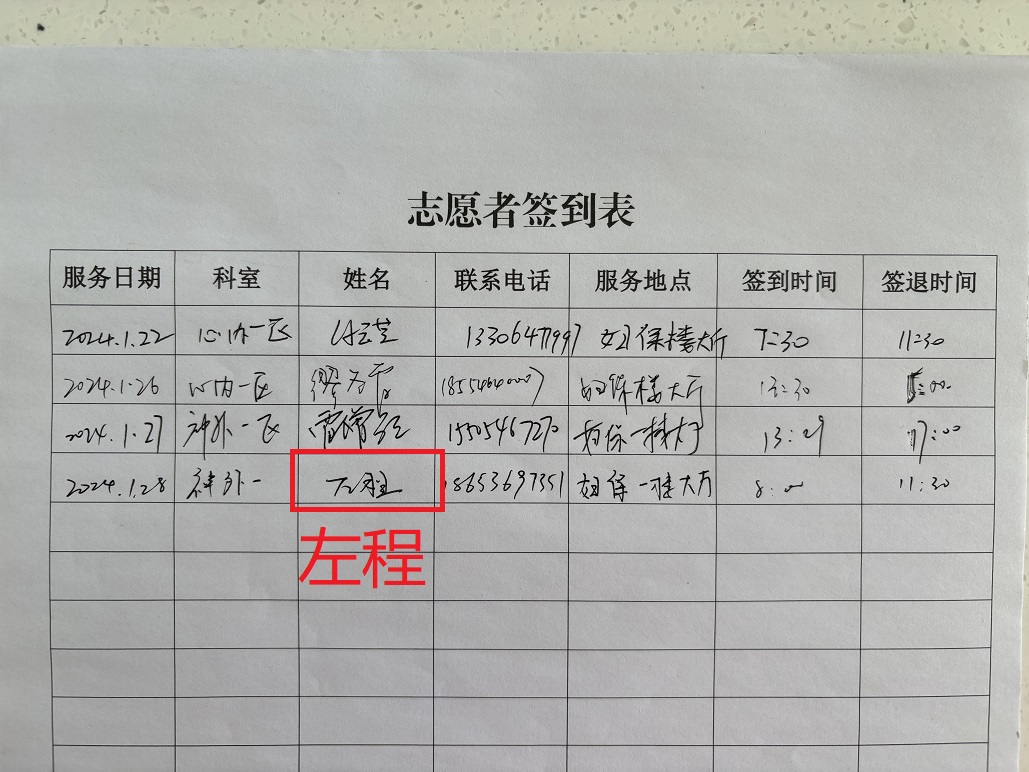 志愿者签到表
服务日期 科室 姓名 联系电话 服务地点 签到时间 签退时间
2024.1.22 心内一区 13306471997 妇保楼大厅 7:30 11:30
2024.1.26 心内一区 18554640007 妇保楼大厅 13:30
2024.1.27 神外一区 15505467270 妇保一楼大厅 13:29 17:00
2024.1.28 神外一 左程 18653697351 妇保一楼大厅 8:00 11:30
左程